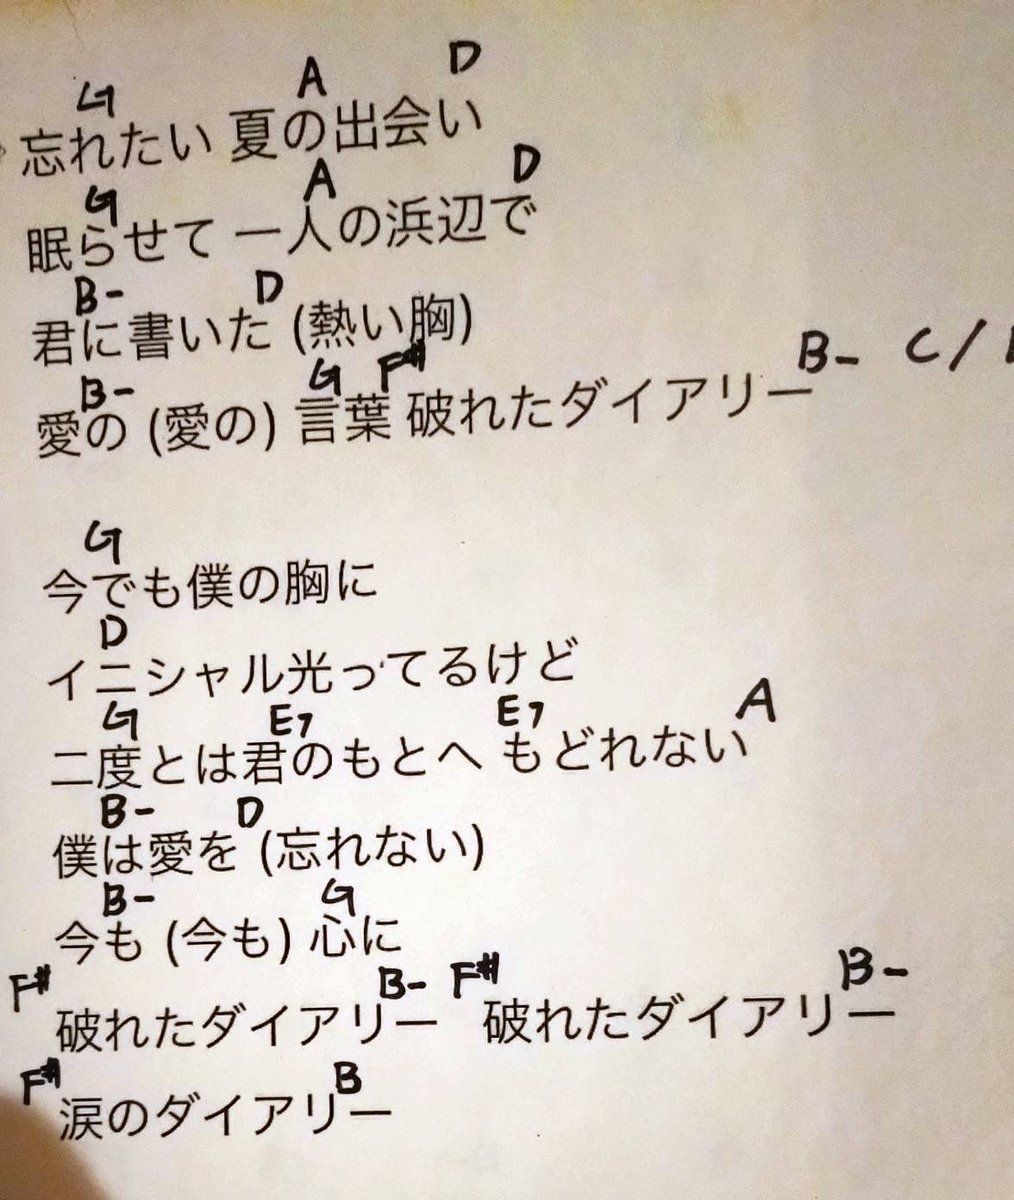 G A D
忘れたい 夏の出会い
G A D
眠らせて 一人の浜辺で
B- D
君に書いた (熱い胸)
B- G F# B- C /
愛の (愛の) 言葉 破れたダイアリー
G
今でも僕の胸に
D
イニシャル光ってるけど
G E7 E7 A
二度とは君のもとへ もどれない
B- D
僕は愛を (忘れない)
B- G
今も (今も) 心に
F# B- F# B-
破れたダイアリー 破れたダイアリー
F# B
涙のダイアリー